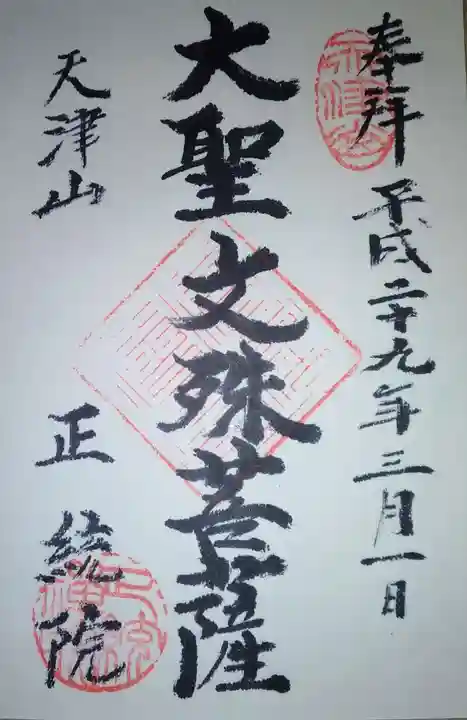 奉拝 平成二十九年三月一日
大聖文殊菩薩
天津山 正統院